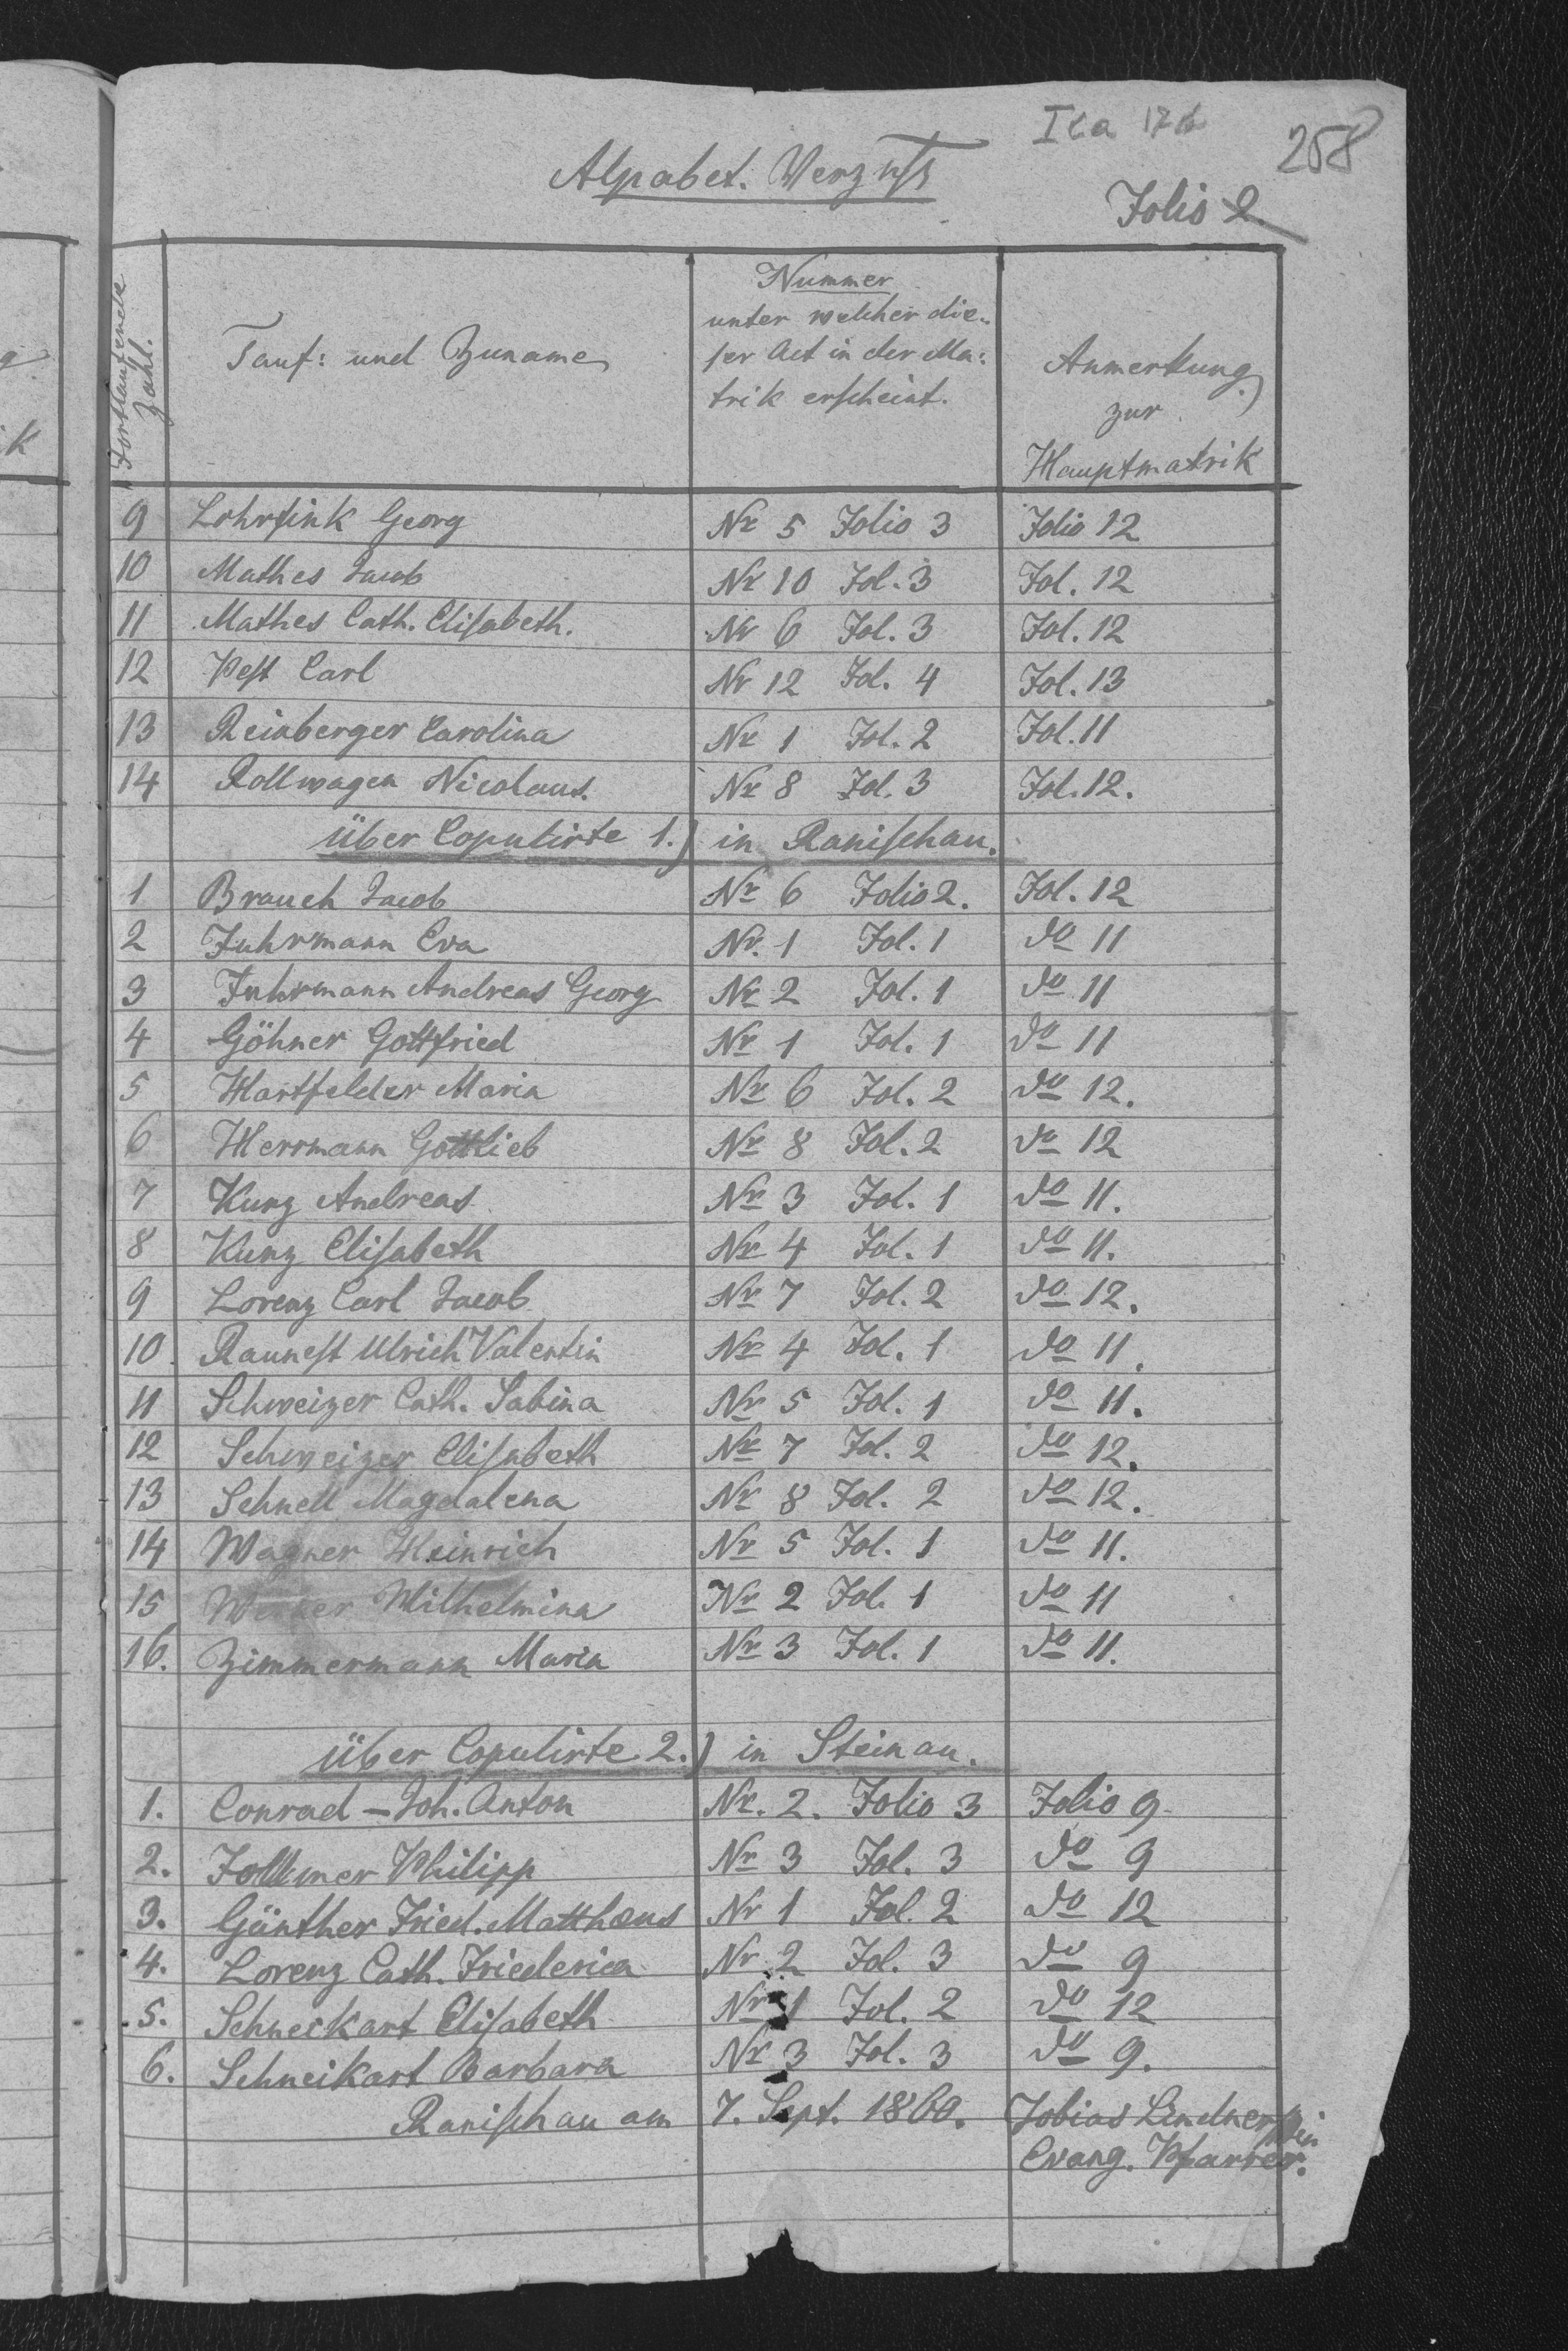 258
Alpabet. Verznss
Folio 2.
Fortlaufende Zahl.
Tauf: und Zuname
Nummer
unter welcher die-
ser Act in der Ma:
trik erscheint.
Anmerkung
zur
Hauptmatrik
9 Lohrfink Georg Nr 5 Folio 3 Folio 12
10 Mathes Jacob Nr 10 Fol. 3 Fol. 12
11 Mathes Cath. Elisabeth. Nr 6 Fol. 3 Fol. 12
12 Pest Carl Nr 12 Fol. 4 Fol. 13
13 Reinberger Carolina Nr 1 Fol. 2 Fol. 11
14 Rollwagen Nicolaus. Nr 8 Fol. 3 Fol. 12.
über Copulirte 1.) in Ranischau.
1 Brauch Jacob Nr 6 Folio 2. Fol. 12
2 Fuhrmann Eva Nr. 1 Fol. 1 do 11
3 Fuhrmann Andreas Georg Nr 2 Fol. 1 do 11
4 Göhner Gottfried Nr 1 Fol. 1 do 11
5 Hartfelder Maria Nr 6 Fol. 2 do 12.
6 Herrmann Gottlieb Nr 8 Fol. 2 do 12
7 Kunz Andreas Nr 3 Fol. 1 do 11.
8 Kunz Elisabeth Nr 4 Fol. 1 do 11.
9 Lorenz Carl Jacob Nr 7 Fol. 2 do 12.
10. Raunest Ulrich Valentin Nr 4 Fol. 1 do 11.
11 Schweizer Cath. Sabina Nr 5 Fol. 1 do 11.
12 Schweizer Elisabeth Nr 7 Fol. 2 do 12.
13 Schnell Magdalena Nr 8 Fol. 2 do 12.
14 Wagner Heinrich Nr 5 Fol. 1 do 11.
15 Wilhelmina Nr 2 Fol. 1 do 11
16. Zimmermann Maria Nr 3 Fol. 1 do 11.
über Copulirte 2.) in Steinau.
1. Conrad – Joh. Anton Nr. 2. Folio 3 Folio 9
2. Follmer Philipp Nr 3 Fol. 3 do 9
3. Günther Fried. Matthæus Nr 1 Fol. 2 do 12
4. Lorenz Cath. Friederica Nr 2 Fol. 3 do 9
5. Schneikart Elisabeth Nr 1 Fol. 2 do 12
6. Schneikart Barbara Nr 3 Fol. 3 do 9.
Ranischau am 7. Sept. 1860. Tobias Lindner
Evang. Pfarrer.